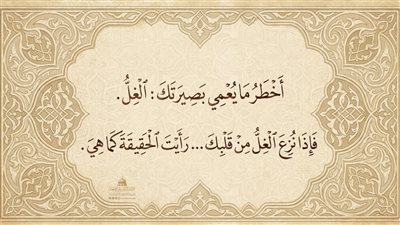 أَخْطَرُ مَا يُعْمِي بَصِيرَتَكَ: الْغِلُّ.
فَإِذَا نُزِعَ الْغِلُّ مِنْ قَلْبِكَ... رَأَيْتَ الْحَقِيقَةَ كَمَا هِيَ.